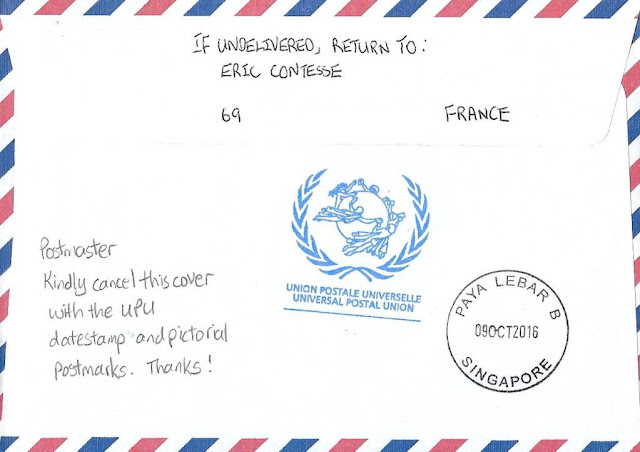 IF UNDELIVERED, RETURN TO:
ERIC CONTESSE
69 FRANCE
Postmaster
Kindly cancel this cover
with the UPU
datestamp and pictorial
postmarks. Thanks!
UNION POSTALE UNIVERSELLE
UNIVERSAL POSTAL UNION
PAYA LEBAR B
09OCT2016
SINGAPORE